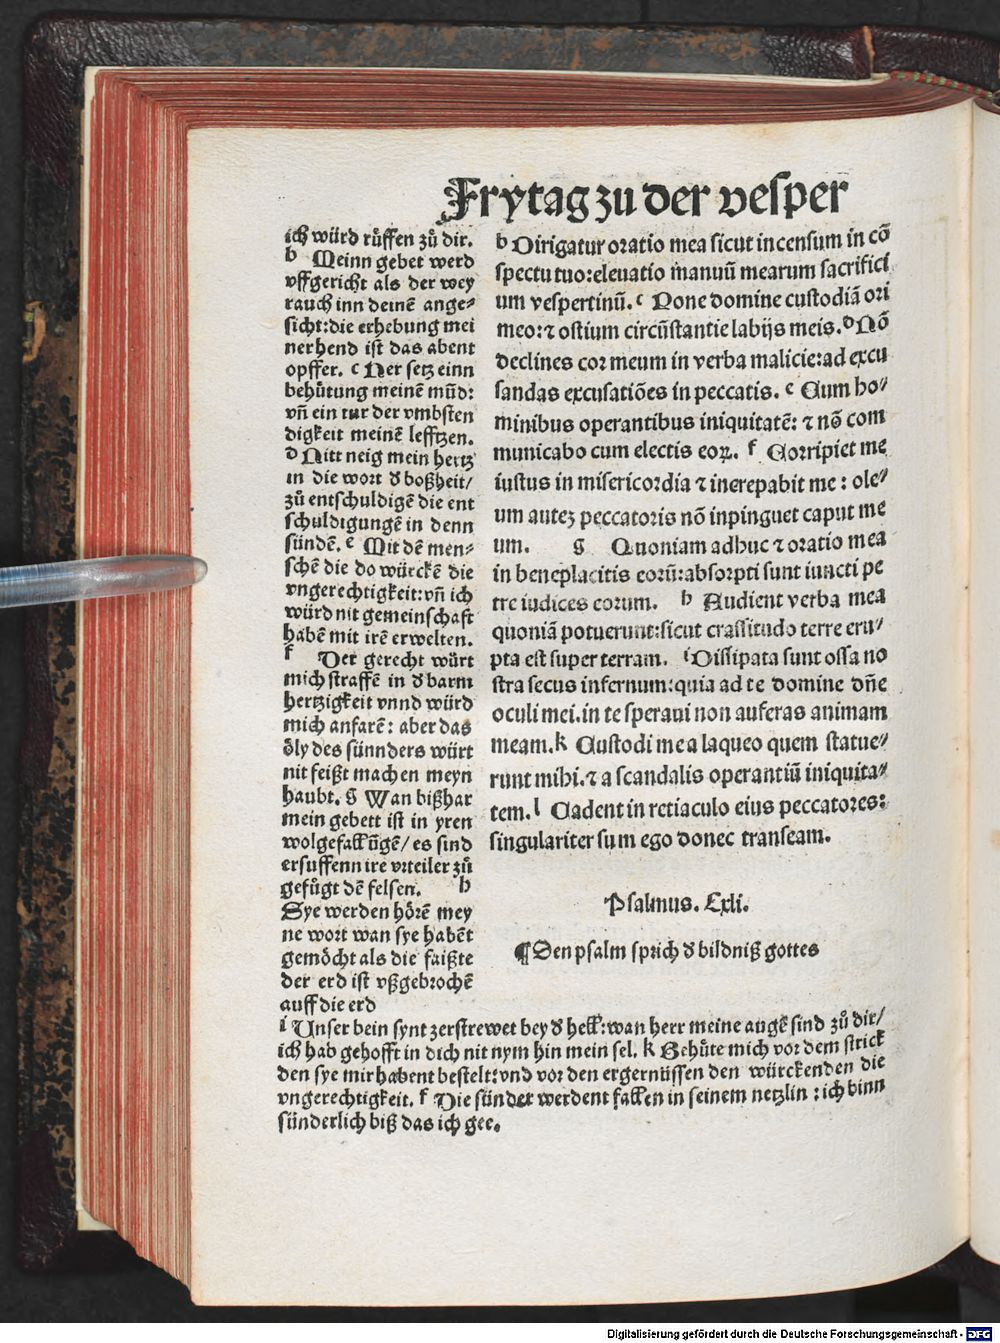 Frytag zu der vesper
ich würd růffen zů dir.
b Meinn gebet werd
vffgericht als der wey
rauch inn deinē ange⸗
sicht: die erhebung mei
ner hend ist das abent
opffer. c Her setz einn
behůtung meinē mūd:
vn̄ ein tur der vmbsten
digkeit meinē lefftzen.
d Nitt neig mein hertz
in die wort d̕ boßheit/
zů entschuldigē die ent
schuldigungē in denn
sünden̄. e Mit dē men⸗
schē die do würckē die
vngerechtigkeit: vn̄ ich
würd nit gemeinschaft
habē mit irē erwelten.
f Der gerecht würt
mich straffē in d̕ barm
hertzigkeit vnnd würd
mich anfarē: aber das
öly des sünnders würt
nit feißt machen meyn
haubt. g Wan bißhar
mein gebett ist in yren
wolgefallūgē/ es sind
ersuffenn ire vrteiler zů
gefůgt dē felsen. h
Sye werden hörē mey
ne wort wan sye habēt
gemöcht als die faißte
der erd ist vßgebrochē
auff die erd
i Unser bein synt zerstrewet bey d̕ hell: wan herr meine augē sind zů dir/
ich hab gehofft in dich nit nym hin mein sel. k Behüte mich vor dem strick
den sye mir habent bestelt: vnd vor den ergernüssen den würckenden die
vngerechtigkeit. f Die sünder werdent fallen in seinem netzlin : ich binn
sünderlich biß das ich gee.
b Dirigatur oratio mea sicut incensum in cō
spectu tuo: eleuatio manuū mearum sacrifici
um vespertinū. c Pone domine custodiā ori
meo: ⁊ ostium circūstantie labijs meis. d Nō
declines cor meum in verba malicie: ad excu
sandas excusatiōes in peccatis. e Cum ho⸗
minibus operantibus iniquitatē: ⁊ nō com
municabo cum electis eoꝝ. f Corripiet me
iustus in misericordia ⁊ increpabit me : ole⸗
um autez peccatoris nō inpinguet caput me
um. g Quoniam adhuc ⁊ oratio mea
in beneplacitis eorū: absorpti sunt iuncti pe
tre iudices eorum. h Audient verba mea
quoniā potuerunt: sicut crassitudo terre eru⸗
pta est super terram. i Dissipata sunt ossa no
stra secus infernum: quia ad te domine dn̄e
oculi mei. in te speraui non auferas animam
meam. k Custodi me a laqueo quem statue⸗
runt mihi. ⁊ a scandalis operantiū iniquita⸗
tem. l Cadent in retiaculo eius peccatores:
singulariter sum ego donec transeam.
Psalmus. Cxli.
¶ Den psalm sprich d̕ bildniß gottes
Digitalisierung gefördert durch die Deutsche Forschungsgemeinschaft - DFG